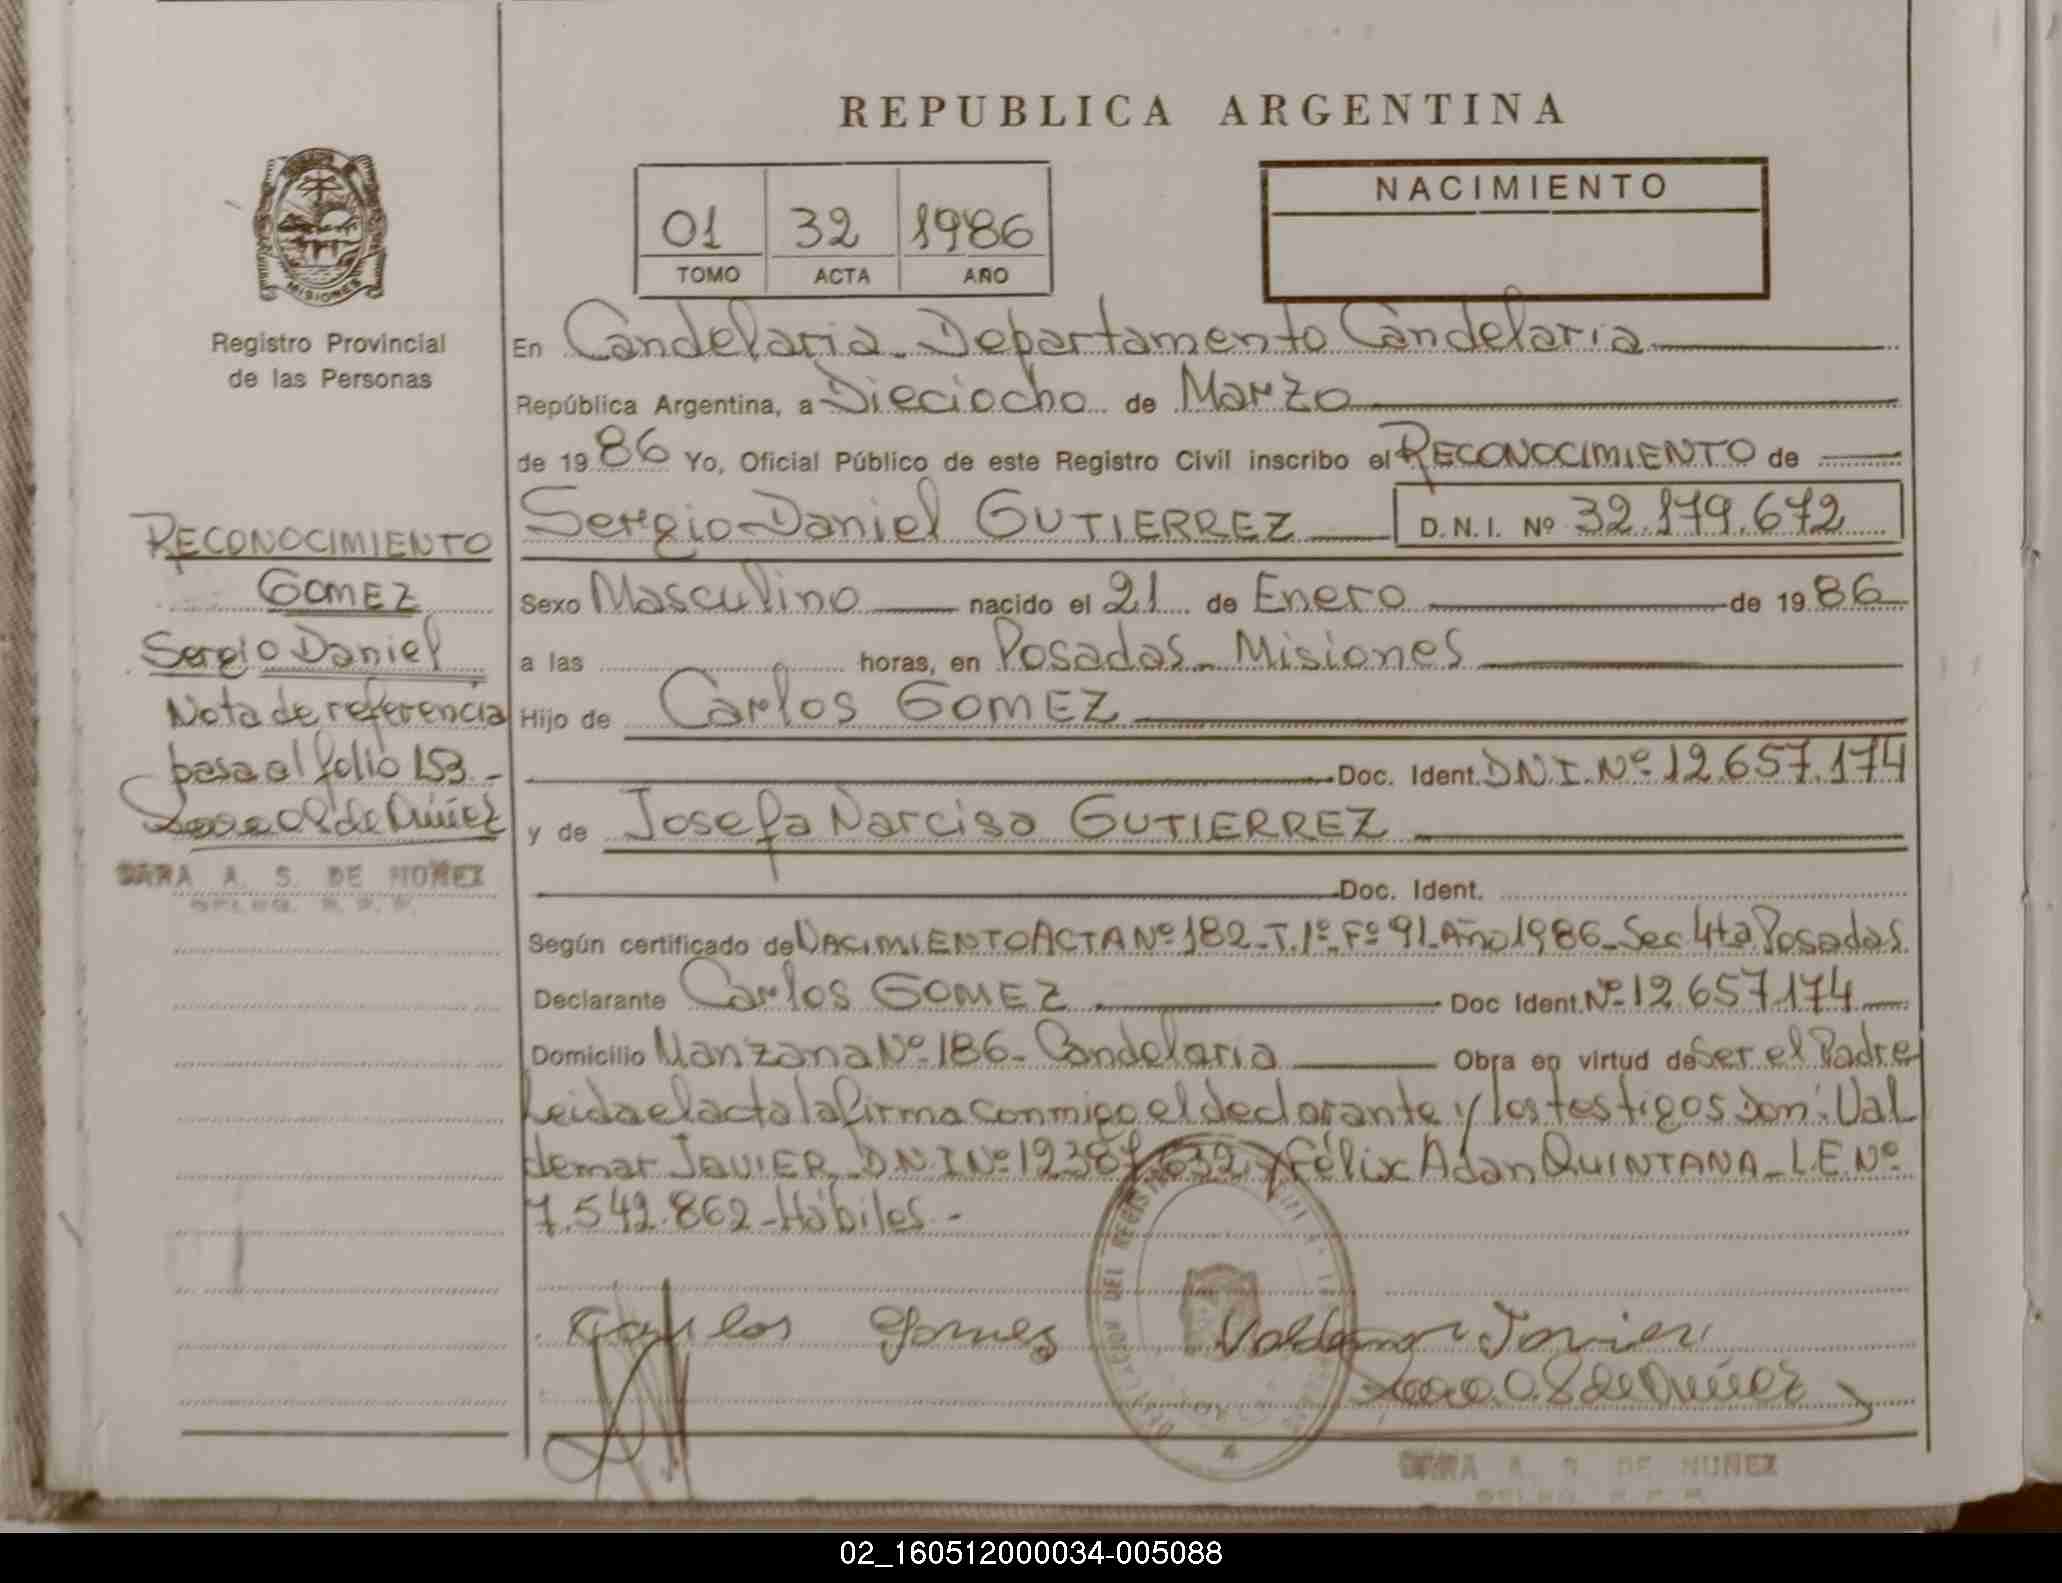 REPUBLICA ARGENTINA
01 32 1986
TOMO ACTA AÑO
NACIMIENTO
MISIONES
Registro Provincial
de las Personas
RECONOCIMIENTO
GOMEZ
Sergio Daniel
Nota de referencia
pasa al folio 153.-
SARA A. S. DE NUÑEZ
En Candelaria - Departamento Candelaria
República Argentina, a Dieciocho de Marzo
de 1986 Yo, Oficial Público de este Registro Civil inscribo el RECONOCIMIENTO de
Sergio Daniel GUTIERREZ D.N.I. Nº 32.179.672
Sexo Masculino nacido el 21 de Enero de 1986
a las horas, en Posadas - Misiones
Hijo de Carlos GOMEZ
Doc. Ident. D.N.I. Nº 12.657.174
y de Josefa Narcisa GUTIERREZ
Doc. Ident.
Según certificado de NACIMIENTO ACTA Nº 182 - T. 1º - Fº 91 - Año 1986 - Sec 4ta Posadas.
Declarante Carlos GOMEZ Doc Ident. Nº 12.657.174
Domicilio Manzana Nº 186 - Candelaria Obra en virtud de Ser el Padre
Leida el acta la firma conmigo el declarante y los testigos Don: Val
demar JAVIER D.N.I Nº 12387.632 y Félix Adan QUINTANA - L.E. Nº
7.542.862 - Hábiles.-
Carlos Gomez Valdemar Javier
SARA A. S. DE NUÑEZ
02_160512000034-005088